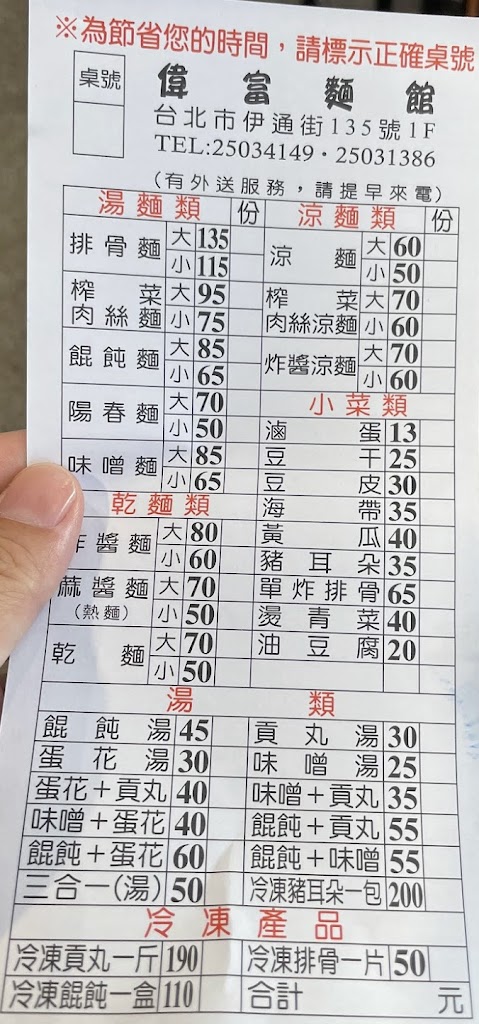 ※為節省您的時間，請標示正確桌號
桌號
偉富麵館
台北市伊通街135號1F
TEL:25034149・25031386
(有外送服務，請提早來電)
湯麵類 份
排骨麵 大 135
小 115
榨菜肉絲麵 大 95
小 75
餛飩麵 大 85
小 65
陽春麵 大 70
小 50
味噌麵 大 85
小 65
乾麵類
醬麵 大 80
小 60
蔴醬麵(熱麵) 大 70
小 50
乾麵 大 70
小 50
涼麵類 份
涼麵 大 60
小 50
榨菜肉絲涼麵 大 70
小 60
炸醬涼麵 大 70
小 60
小菜類
滷蛋 13
豆干 25
豆皮 30
海帶 35
黃瓜 40
豬耳朵 35
單炸排骨 65
燙青菜 40
油豆腐 20
湯類
餛飩湯 45 貢丸湯 30
蛋花湯 30 味噌湯 25
蛋花＋貢丸 40 味噌＋貢丸 35
味噌＋蛋花 40 餛飩＋貢丸 55
餛飩＋蛋花 60 餛飩＋味噌 55
三合一(湯) 50 冷凍豬耳朵一包 200
冷凍產品
冷凍貢丸一斤 190 冷凍排骨一片 50
冷凍餛飩一盒 110 合計 元